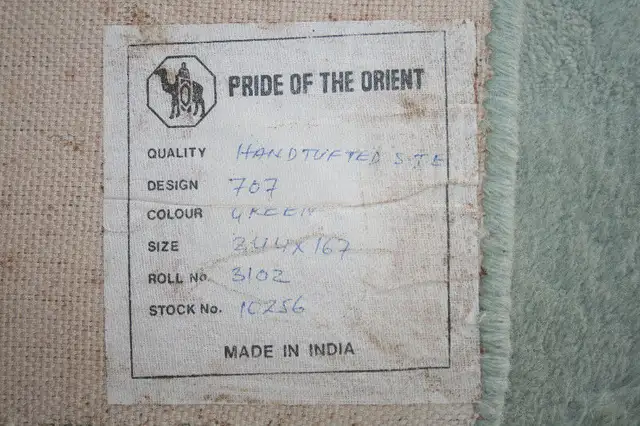 PRIDE OF THE ORIENT
QUALITY HANDTUFTED S.TE
DESIGN 707
COLOUR GREEN
SIZE 244x167
ROLL No. 3102
STOCK No. 10256
MADE IN INDIA